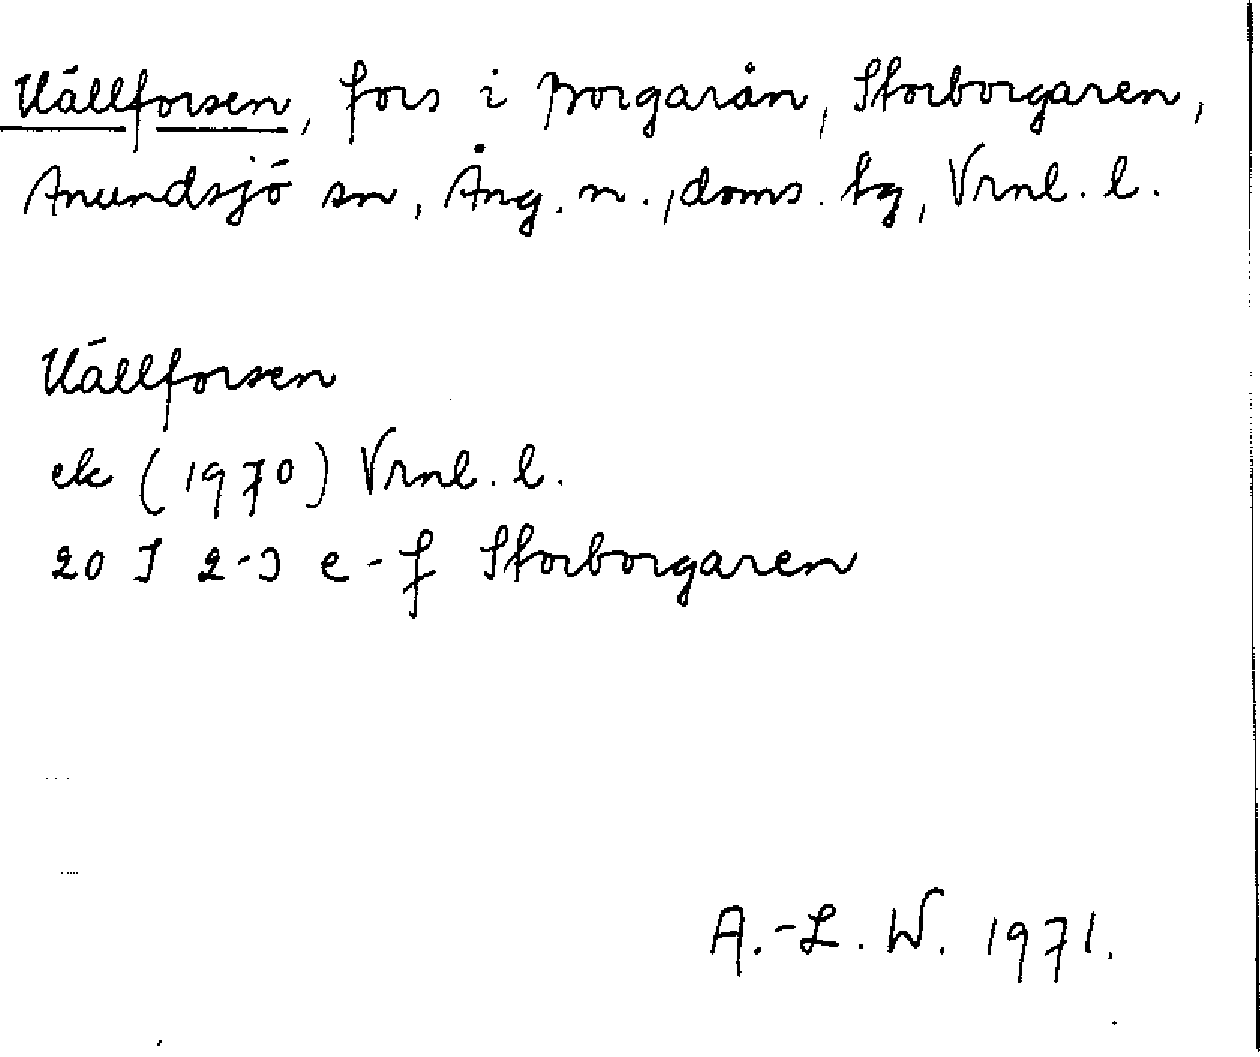 Källforsen, fors i Borgarån, Storborgaren,
Anundsjö sn, Ång. n., doms. tg, Vrnl. l.
Källforsen
ek (1970) Vrnl. l.
20 J 2-3 e-f Storborgaren
A.-L. W. 1971.